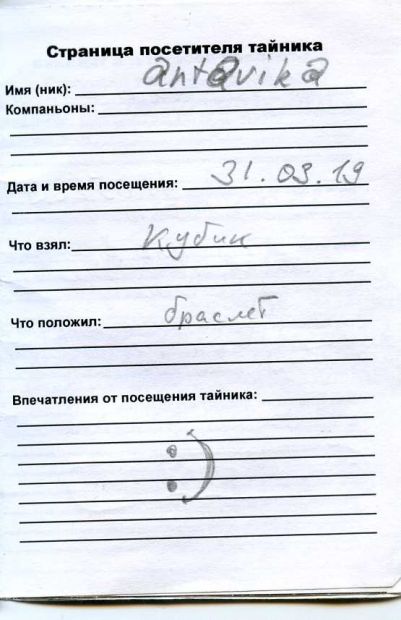 Страница посетителя тайника
Имя (ник): antavika
Компаньоны:
Дата и время посещения: 31.03.19
Что взял: Кубик
Что положил: браслет
Впечатления от посещения тайника:
:)